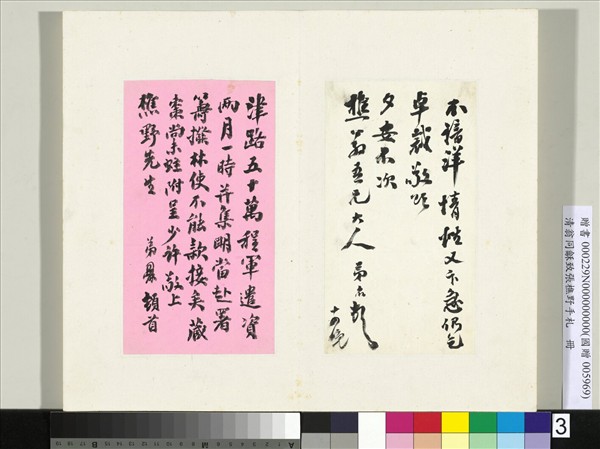 不稽詳情性又卞急仍乞
卓裁敬頌
夕安不次
樵翁吾兄大人 弟 頓
十四晚
津路五十萬程軍遣資
兩月一時并集明當赴署
籌撥林使不能款接矣藏
棗尚未蛀附呈少許敬上
樵野先生
弟 頓首
贈書 000229N000000000(國贈 005969)
清翁同龢致張樵野手札 冊
3